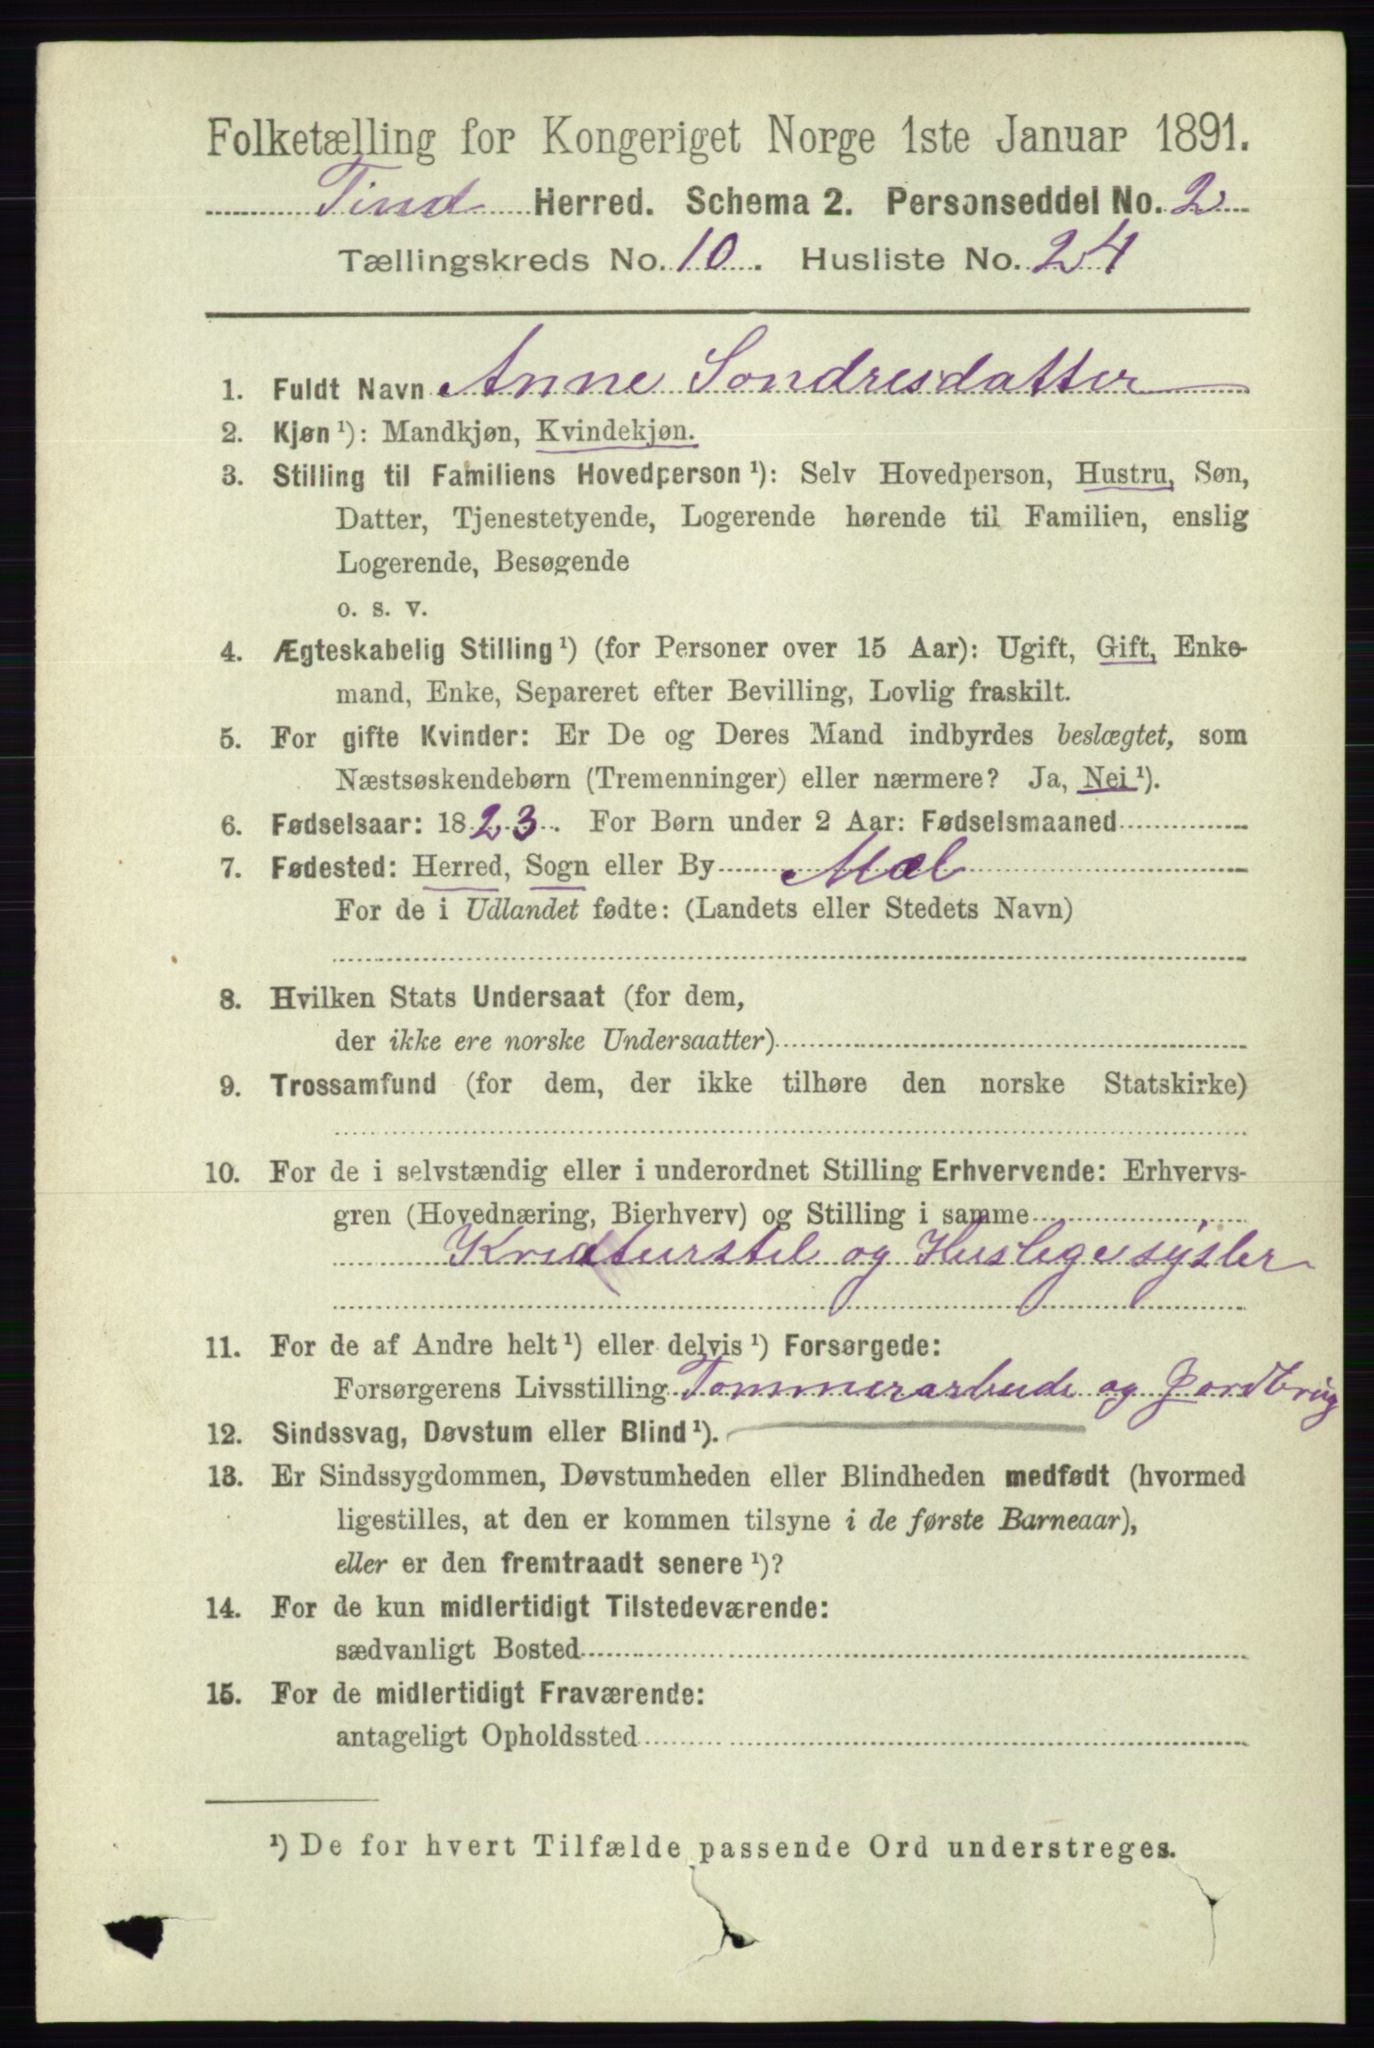 Folketælling for Kongeriget Norge 1ste Januar 1891.
Tind Herred. Schema 2. Personseddel No. 2
Tællingskreds No. 10. Husliste No. 24
1. Fuldt Navn Anne Sondresdatter
2. Kjøn¹): Mandkjøn, Kvindekjøn.
3. Stilling til Familiens Hovedperson¹): Selv Hovedperson, Hustru, Søn,
Datter, Tjenestetyende, Logerende hørende til Familien, enslig
Logerende, Besøgende
o. s. v.
4. Ægteskabelig Stilling¹) (for Personer over 15 Aar): Ugift, Gift, Enke-
mand, Enke, Separeret efter Bevilling, Lovlig fraskilt.
5. For gifte Kvinder: Er De og Deres Mand indbyrdes beslægtet, som
Næstsøskendebørn (Tremenninger) eller nærmere? Ja, Nei¹).
6. Fødselsaar: 1823. For Børn under 2 Aar: Fødselsmaaned
7. Fødested: Herred, Sogn eller By Mæl
For de i Udlandet fødte: (Landets eller Stedets Navn)
8. Hvilken Stats Undersaat (for dem,
der ikke ere norske Undersaatter)
9. Trossamfund (for dem, der ikke tilhøre den norske Statskirke)
10. For de i selvstændig eller i underordnet Stilling Erhvervende: Erhvervs-
gren (Hovednæring, Bierhverv) og Stilling i samme
Kreaturstel og Huslige sysler
11. For de af Andre helt¹) eller delvis¹) Forsørgede:
Forsørgerens Livsstilling Tømmerarbeide og Jordbrug
12. Sindssvag, Døvstum eller Blind¹).
13. Er Sindssygdommen, Døvstumheden eller Blindheden medfødt (hvormed
ligestilles, at den er kommen tilsyne i de første Barneaar),
eller er den fremtraadt senere¹)?
14. For de kun midlertidigt Tilstedeværende:
sædvanligt Bosted
15. For de midlertidigt Fraværende:
antageligt Opholdssted
¹) De for hvert Tilfælde passende Ord understreges.